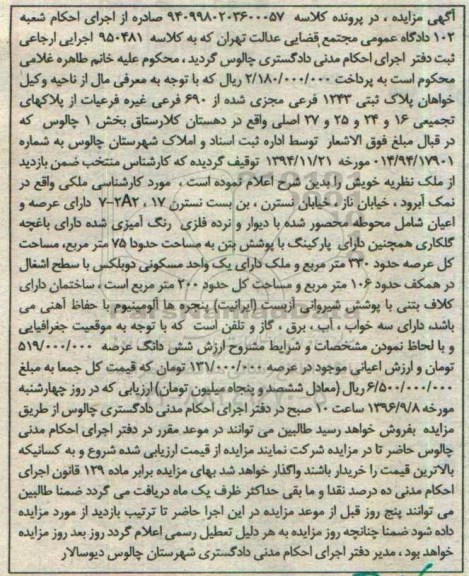 آگهی مزایده ، در پرونده کلاسه ۹۴۰۹۹۸۰۲۰۳۶۰۰۰۵۷ صادره از اجرای احکام شعبه
۱۰۲ دادگاه عمومی مجتمع قضایی عدالت تهران که به کلاسه ۹۵۰۴۸۱ اجرایی ارجاعی
ثبت دفتر اجرای احکام مدنی دادگستری چالوس گردید ، محکوم علیه خانم طاهره غلامی
محکوم است به پرداخت ۲/۱۸۰/۰۰۰/۰۰۰ ریال که با توجه به معرفی مال از ناحیه وکیل
خواهان پلاک ثبتی ۱۲۴۳ فرعی مجزی شده از ۶۹۰ فرعی غیره فرعیات از پلاکهای
تجمیعی ۱۶ و ۲۴ و ۲۵ و ۲۷ اصلی واقع در دهستان کلارستاق بخش ۱ چالوس که
در قبال مبلغ فوق الاشعار توسط اداره ثبت اسناد و املاک شهرستان چالوس به شماره
۰۱۴/۹۴/۱۷۹۰۱ مورخه ۱۳۹۴/۱۱/۲۱ توقیف گردیده که کارشناس منتخب ضمن بازدید
از ملک نظریه خویش را بدین شرح اعلام نموده است ، مورد کارشناسی ملکی واقع در
نمک آبرود ، خیابان ناز ، خیابان نسترن ، بن بست نسترن ۱۷ ، ۷-۲A۲ دارای عرصه و
اعیان شامل محوطه محصور شده با دیوار و نرده فلزی رنگ آمیزی شده دارای باغچه
گلکاری همچنین دارای پارکینگ با پوشش بتن به مساحت حدودا ۷۵ متر مربع، مساحت
کل عرصه حدود ۳۳۰ متر مربع و ملک دارای یک واحد مسکونی دوبلکس با سطح اشغال
در همکف حدود ۱۰۶ متر مربع و مساحت کل حدود ۲۰۰ متر مربع است ، ساختمان دارای
کلاف بتنی با پوشش شیروانی آزبست (ایرانیت) پنجره ها آلومینیوم با حفاظ آهنی می
باشد، دارای سه خواب ، آب ، برق ، گاز و تلفن است که با توجه به موقعیت جغرافیایی
و با لحاظ نمودن مشخصات و شرایط مشروح ارزش شش دانگ عرصه ۵۱۹/۰۰۰/۰۰۰
تومان و ارزش اعیانی موجود در عرصه ۱۳۱/۰۰۰/۰۰۰ تومان که قیمت کل جمعا به مبلغ
۶/۵۰۰/۰۰۰/۰۰۰ ریال (معادل ششصد و پنجاه میلیون تومان) ارزیابی که در روز چهارشنبه
مورخه ۱۳۹۶/۹/۸ ساعت ۱۰ صبح در دفتر اجرای احکام مدنی دادگستری چالوس از طریق
مزایده بفروش خواهد رسید طالبین می توانند در موعد مقرر در دفتر اجرای احکام مدنی
چالوس حاضر تا در مزایده شرکت نمایند مزایده از قیمت ارزیابی شده شروع و به کسانیکه
بالاترین قیمت را خریدار باشند واگذار خواهد شد بهای مزایده برابر ماده ۱۲۹ قانون اجرای
احکام مدنی ده درصد نقدا و ما بقی حداکثر ظرف یک ماه دریافت می گردد ضمنا طالبین
می توانند پنج روز قبل از موعد مزایده در این اجرا حاضر تا ترتیب بازدید از مورد مزایده
داده شود ضمنا چنانچه روز مزایده به هر دلیل تعطیل رسمی اعلام گردد روز بعد روز مزایده
خواهد بود ، مدیر دفتر اجرای احکام مدنی دادگستری شهرستان چالوس دیوسالار